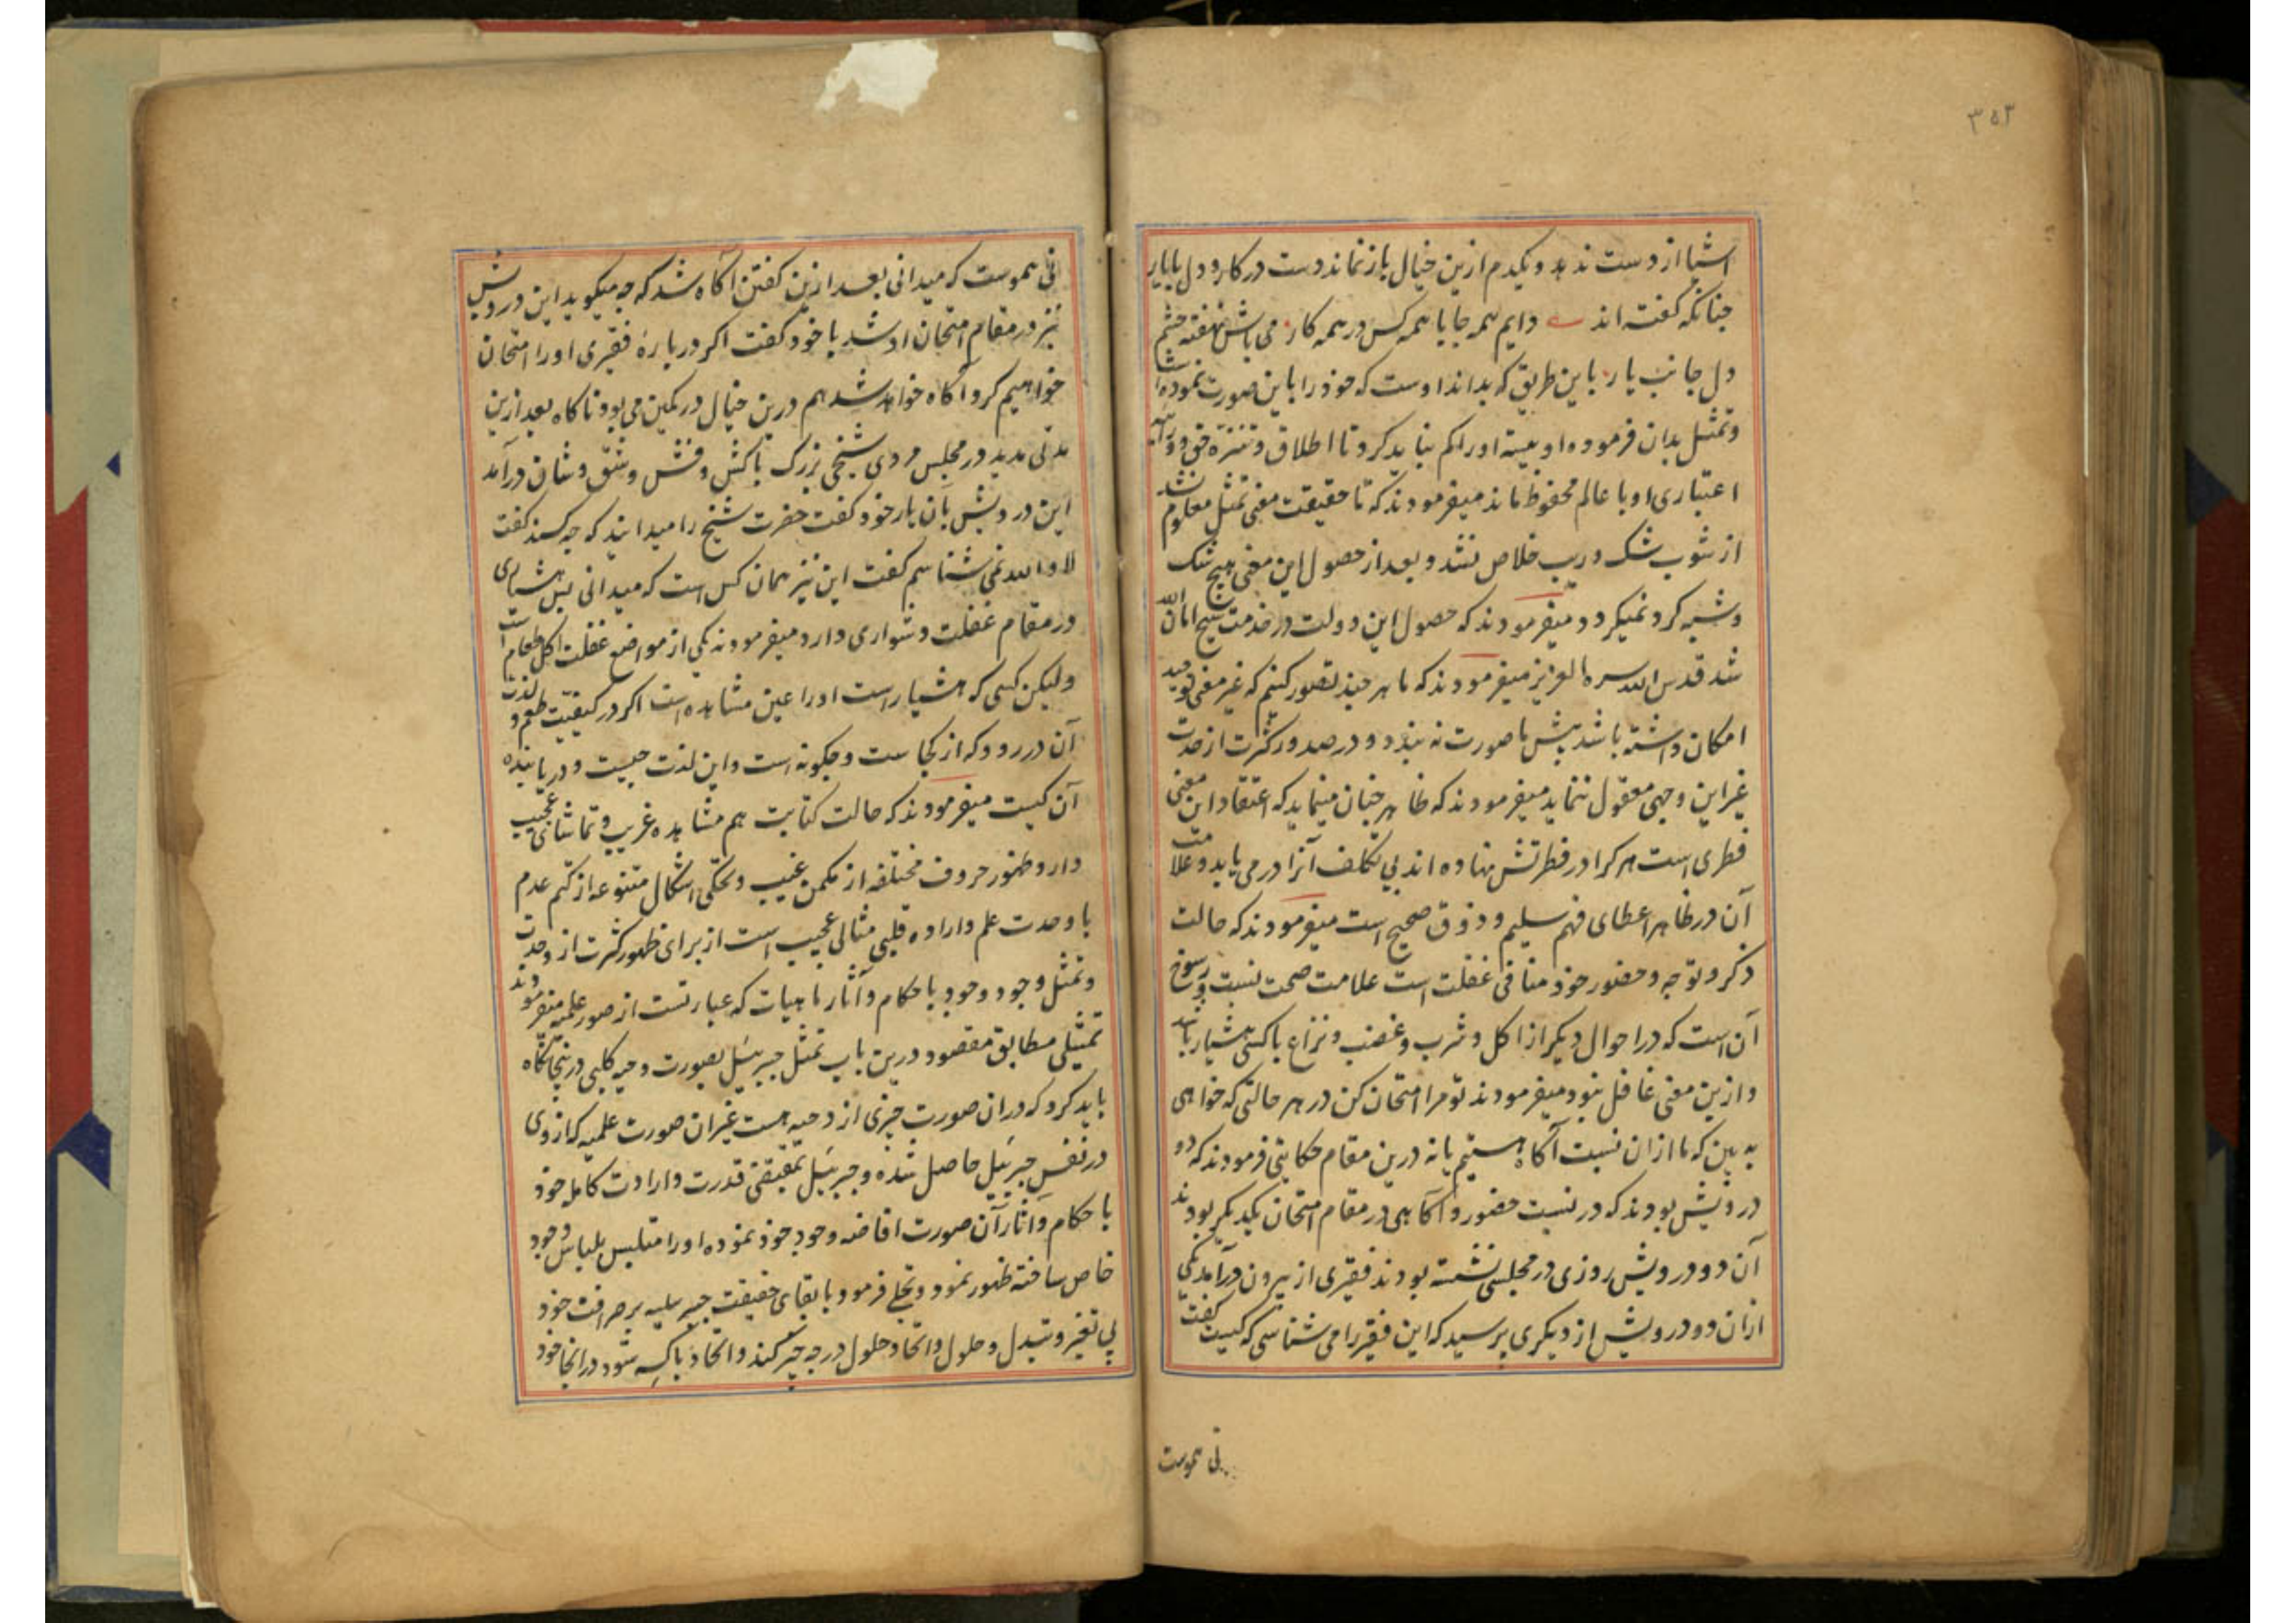 ۳۵۳
اشیا از دست ندهد و یکدم ازین خیال باز نماند دست در کار و دل با یار
چنانکه گفته اند دایم همه جا با همه کس در همه کار می باش نهفته چشم
دل جانب یار باین طریق که بداند اوست که خود را باین صورت نموده است
و تمثل بدان فرموده او نیسته او را کم نباید کرد تا اطلاق و تنزه حق و
اعتباری او با عالم محفوظ ماند میفرمودند که تا حقیقت معنی تمثل معلوم نشد
از شوب شک و ریب خلاص نشد و بعد از حصول این معنی هیچ شک
و شبهه کرد نمیکردد میفرمودند که حصول این دولت در خدمت شیخ امان الله
شد قدس الله سره العزیز میفرمودند که ما هر چند تصور کنیم که غیر معنی توحید
امکان داشته باشد پیش ما صورت نه بندد و در صدور کثرت از وحدت
غیر این وجهی معقول ننماید میفرمودند که ظاهر چنان مینماید که اعتقاد این معنی
فطری است هر کرا در فطرتش نهاده اند بی تکلف آنرا در می یابد و علامت
آن در ظاهر اعطای فهم سلیم و ذوق صحیح است میفرمودند که حالت
ذکر و توجه و حضور خود منافی غفلت است علامت صحت نسبت و رسوخ
آن است که در احوال دیگر از اکل و شرب و غضب و نزاع با کسی هشیار باشد
و ازین معنی غافل نبود میفرمودند تو مرا امتحان کن در هر حالتی که خواهی
به بین که ما ازان نسبت آگاه هستیم یا نه درین مقام حکایتی فرمودند که دو
درویش بودند که در نسبت حضور و آگاهی در مقام امتحان یکدیگر بودند
آن دو درویش روزی در مجلسی نشسته بودند فقیری از بیرون درآمد یکی
ازان دو درویش از دیگری پرسید که این فقیر را می شناسی که کیست گفت
نی هموست
نی هموست که میدانی بعد ازین گفتن آگاه شد که چه میگوید این درویش
نیز در مقام امتحان او شد با خود گفت اگر درباره فقیری او را امتحان
خواهیم کرد آگاه خواهد شد هم درین خیال در کمین می بود تا گاه بعد ازین
مدتی مدید در مجلس مردی شیخی بزرگ با کش و فش و شق و شان درآمد
این درویش بآن یار خود گفت حضرت شیخ را میدانید که چه کسند گفت
لا والله نمی شناسم گفت این نیز همان کس است که میدانی پس هشیاری
در مقام غفلت دشواری دارد میفرمودند یکی از مواضع غفلت اکل طعام است
ولیکن کسی که هشیار است او را عین مشاهده است اگر در کیفیت طعم و لذت
آن در رود که از کجاست و چگونه است و این لذت چیست و دریابنده
آن کیست میفرمودند که حالت کتابت هم مشاهده غریب و تماشای عجیب
دارد ظهور حروف مختلفه از مکمن غیب و تحکی اشکال متنوعه از کتم عدم
با وحدت علم و اراده قلبی مثالی عجیب است از برای ظهور کثرت از وحدت
و تمثل وجود وجود باحکام و آثار ماهیات که عبارتست از صور علمیه میفرمودند
تمثیلی مطابق مقصود درین باب تمثل جبرئیل بصورت دحیه کلبی درینجا نگاه
باید کرد که دران صورت چیزی از دحیه هست غیر ان صورت علمیه که از وی
در نفس جبرئیل حاصل شده و جبرئیل بمقتضی قدرت و ارادت کامله خود
باحکام و آثار آن صورت افاضه وجود خود نموده او را متلبس بلباس وجود
خاص ساخته ظهور نمود و تجلی فرمود با بقای حقیقت جبرئیلیه بر صرافت خود
بی تغیر و تبدل و حلول و اتحاد حلول در چه چیز کند و اتحاد با که شود در انجا خود